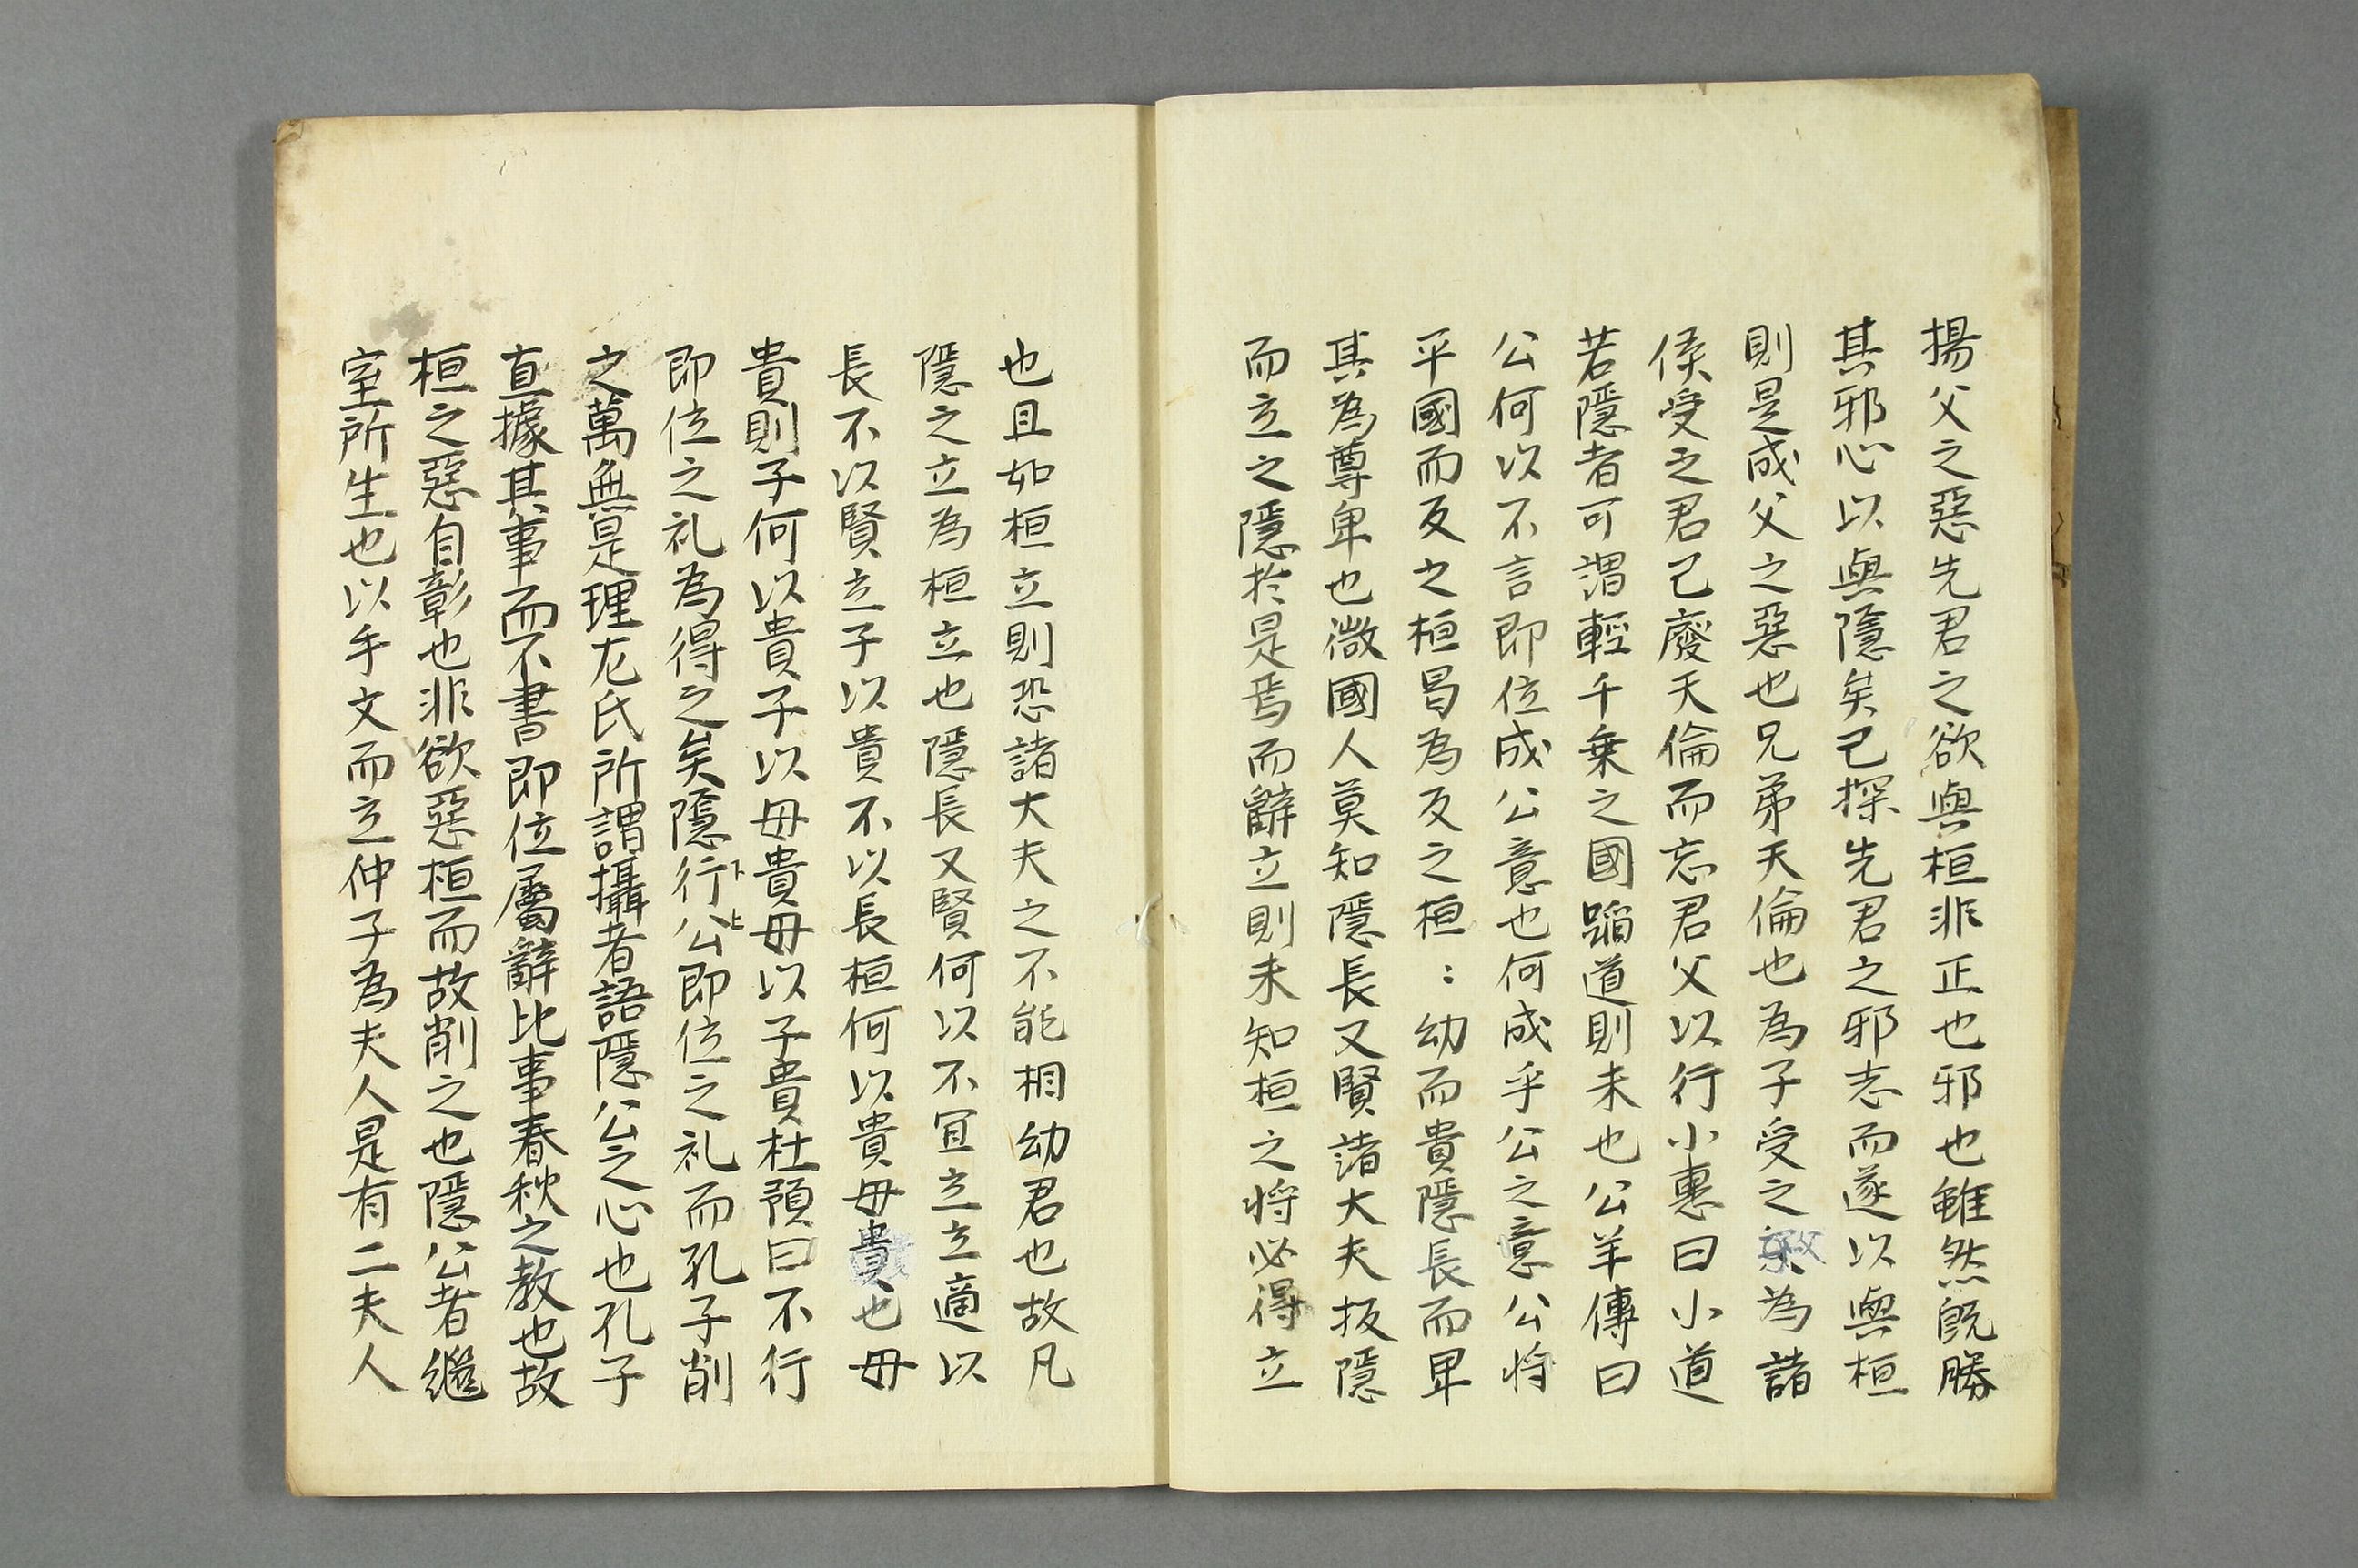 揚父之惡先君之欲與桓非正也邪也雖然既勝
其邪心以與隱矣己探先君之邪志而遂以與桓
則是成父之惡也兄弟天倫也為子受之父為諸
侯受之君己廢天倫而忘君父以行小惠曰小道
若隱者可謂輕千乗之國蹈道則未也公羊傳曰
公何以不言即位成公意也何成乎公之意公将
平國而反之桓曷為反之桓〻幼而貴隱長而卑
其為尊卑也微國人莫知隱長又賢諸大夫扳隱
而立之隱於是焉而辭立則未知桓之将必得立
也且如桓立則恐諸大夫之不能相幼君也故凡
隱之立為桓立也隱長又賢何以不宜立立適以
長不以賢立子以貴不以長桓何以貴母貴也母
貴則子何以貴子以母貴母以子貴杜預曰不行
即位之礼為得之矣隱行下公上即位之礼而孔子削
之萬無是理左氏所謂攝者語隱公之心也孔子
直據其事而不書即位屬辭比事春秋之教也故
桓之惡自彰也非欲惡桓而故削之也隱公者繼
室所生也以手文而立仲子為夫人是有二夫人